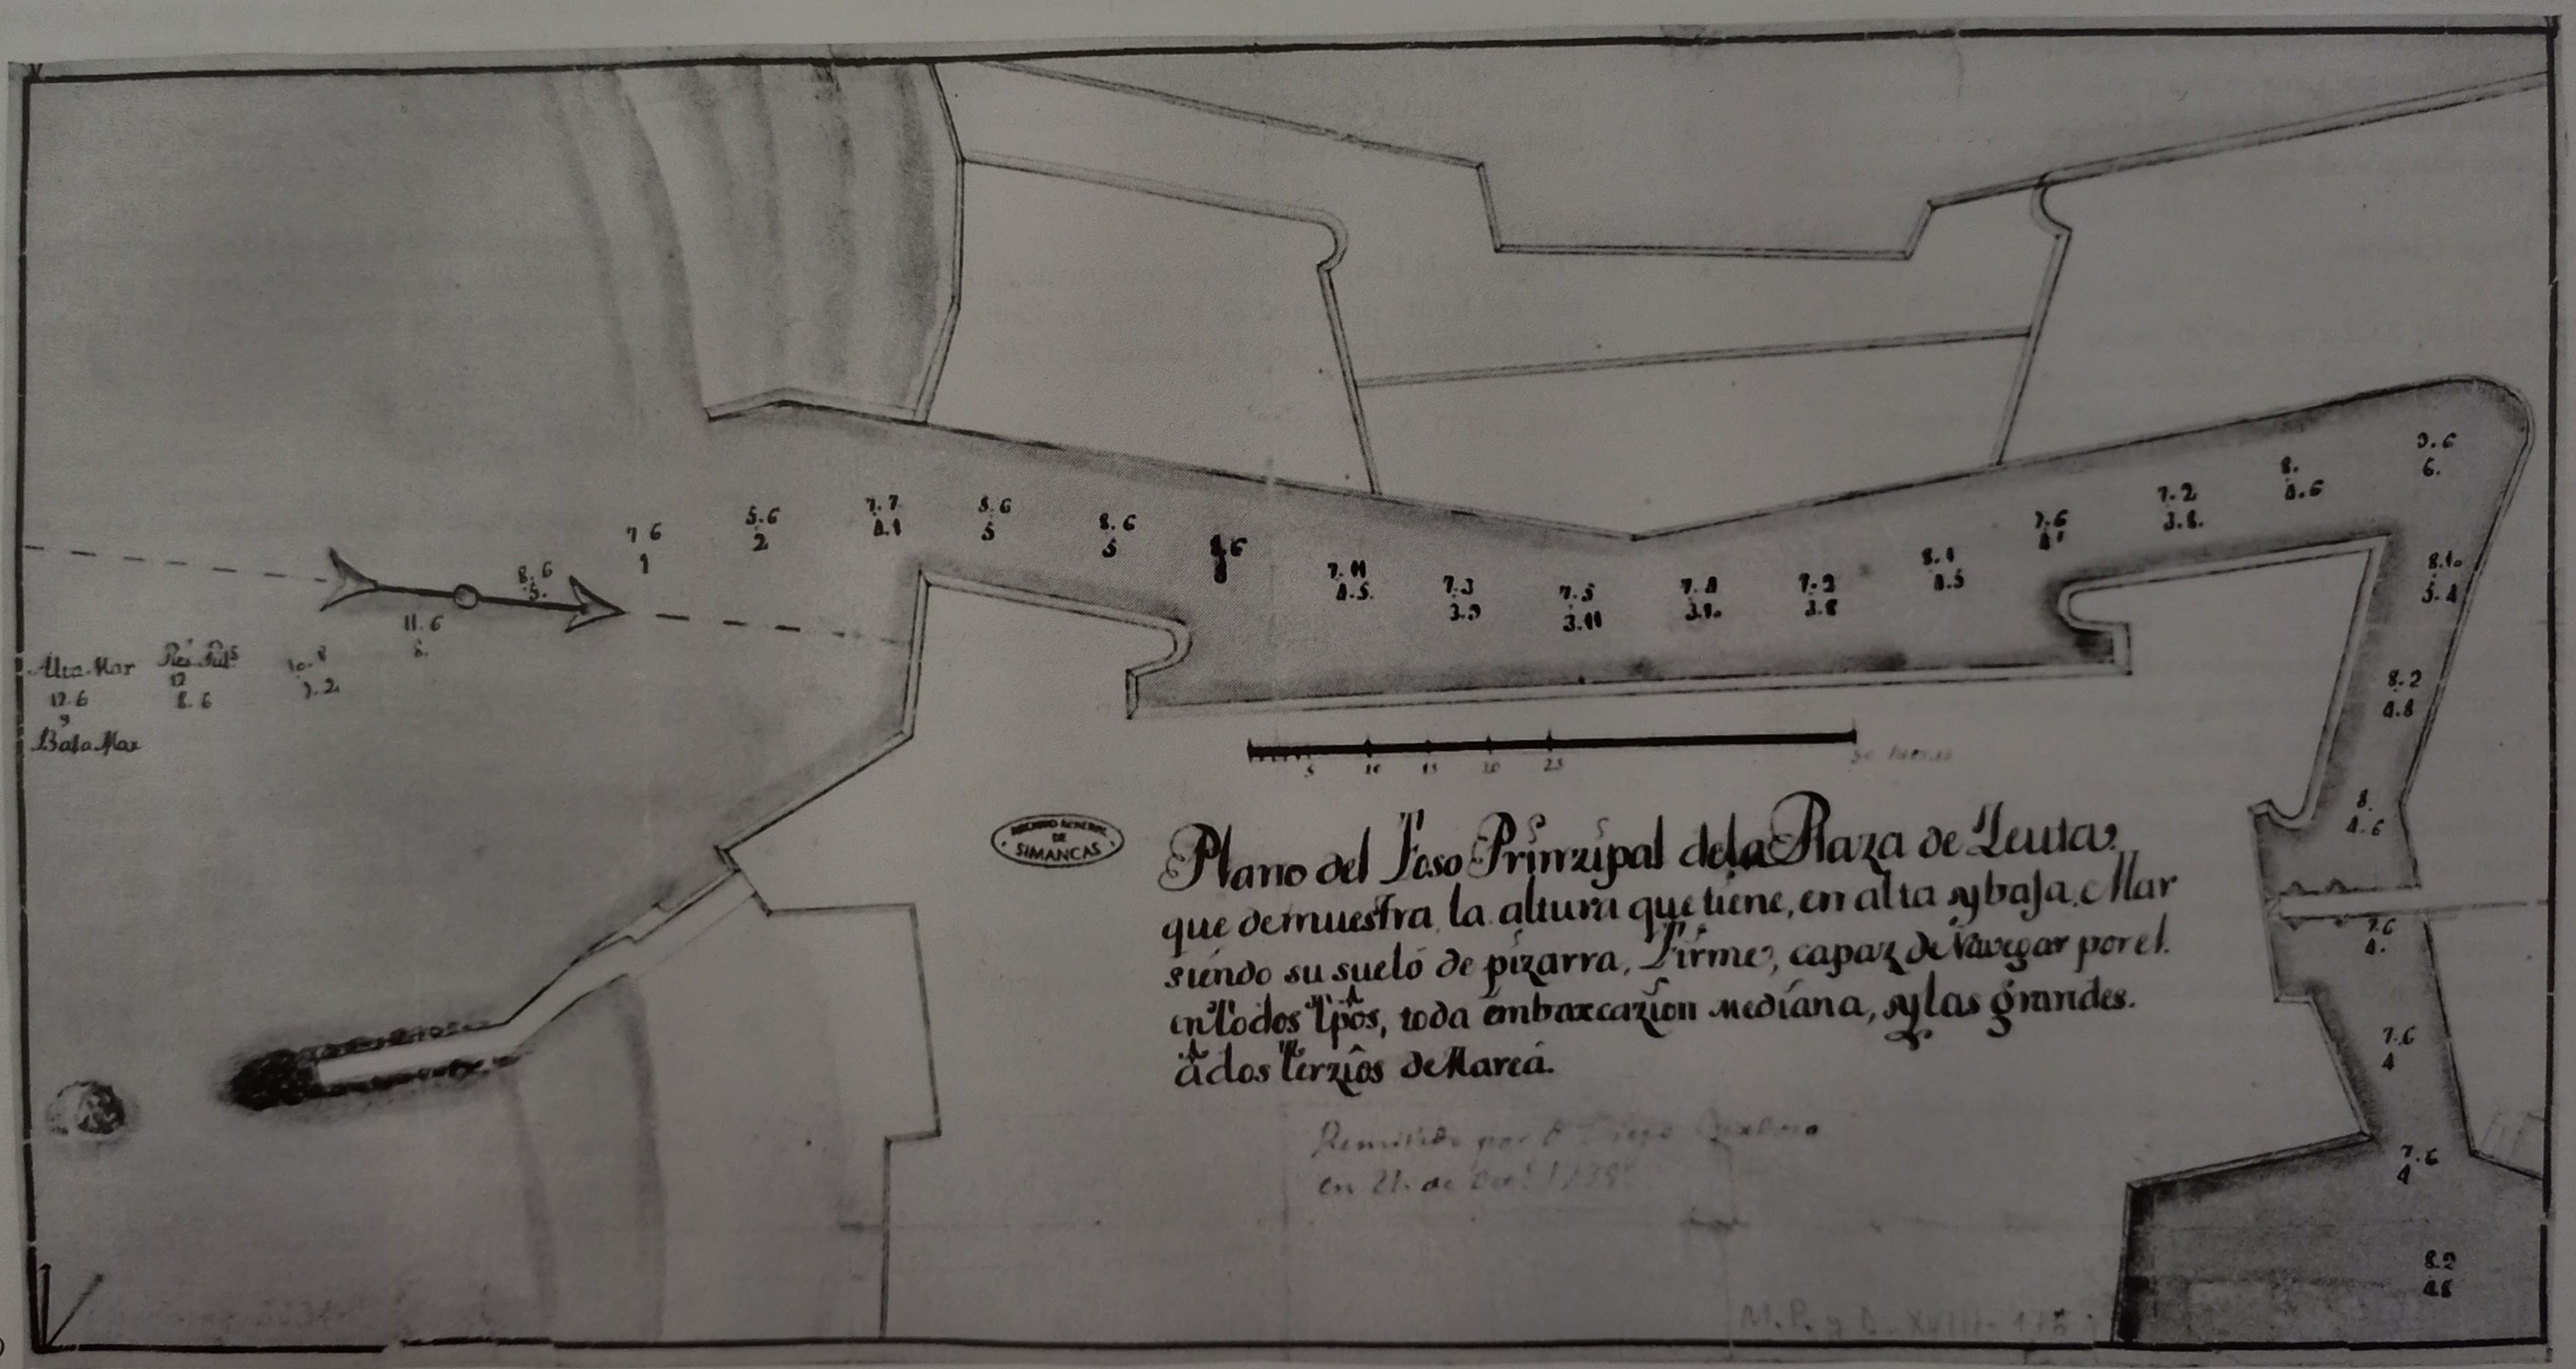 Alta Mar
12.6
y
Baja Mar
Pies Pulˢ
12
8.6
10.8
7.2
11.6
8.
8.6
5.
7 6
1
5.6
2
7.7
4.1
8.6
5
8.6
5
8.6
7.11
4.5.
7.3
3.9
7.5
3.11
7.4
3.10
7.2
3.8
8.1
4.5
7.6
4
7.2
3.8.
8.
4.6
9.6
6.
8.10
5.4
8.2
4.8
8.
4.6
7.6
4.
7.6
4
7.6
4
8.2
4.8
5
10
15
20
25
50 tuesas
ARCHIVO GENERAL
DE
SIMANCAS
Plano del Foso Prinzipal dela Plaza de Zeuta,
que demuestra la altura que tiene, en alta y baja Mar
siendo su suelo de pizarra, Firme, capaz de Navegar por el.
en todos tpos, toda embarcazion mediana, y las grandes.
à dos terzios de Marea.
Remitido por D Diego
en 21. de
M. P. y D. XVIII-